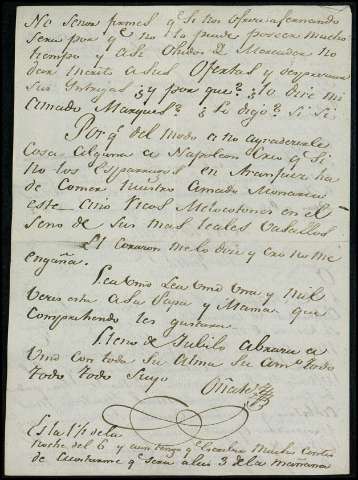 No Señor firmes qe si nos ofrece a fernando
sera por qe no lo puede poseer mucho
tiempo y asi Oidos de Mercader no
dar merito a sus Ofertas y despreciar
sus intrigas ¿y por que? ¿lo dire mi
amado Marques? ¿Lo digo? Si Si
Porqe del modo a no agradecerle
cosa alguna a Napoleon Creo qe Si
no los Esparragos en Aranjuez ha
de Comer Nuestro Amado Monarca
este Año Ricos Melocotones en el
seno de sus mas leales Vasallos
El corazon me lo dice y creo no me
engaña.
Lea Vmd Lea Vmd Una y mil
veces esta a Su Papa y Mama que
Comprehendo les gustara
Lleno de Jubilo abraza a
Vmd con todo Su Alma Su amo todo
todo todo Suyo
Oñate
Es la 1½ de la
noche del 6 y aun tengo qe escribir Mucho Conto
de Acostarme qe sera a las 3 de la mañana